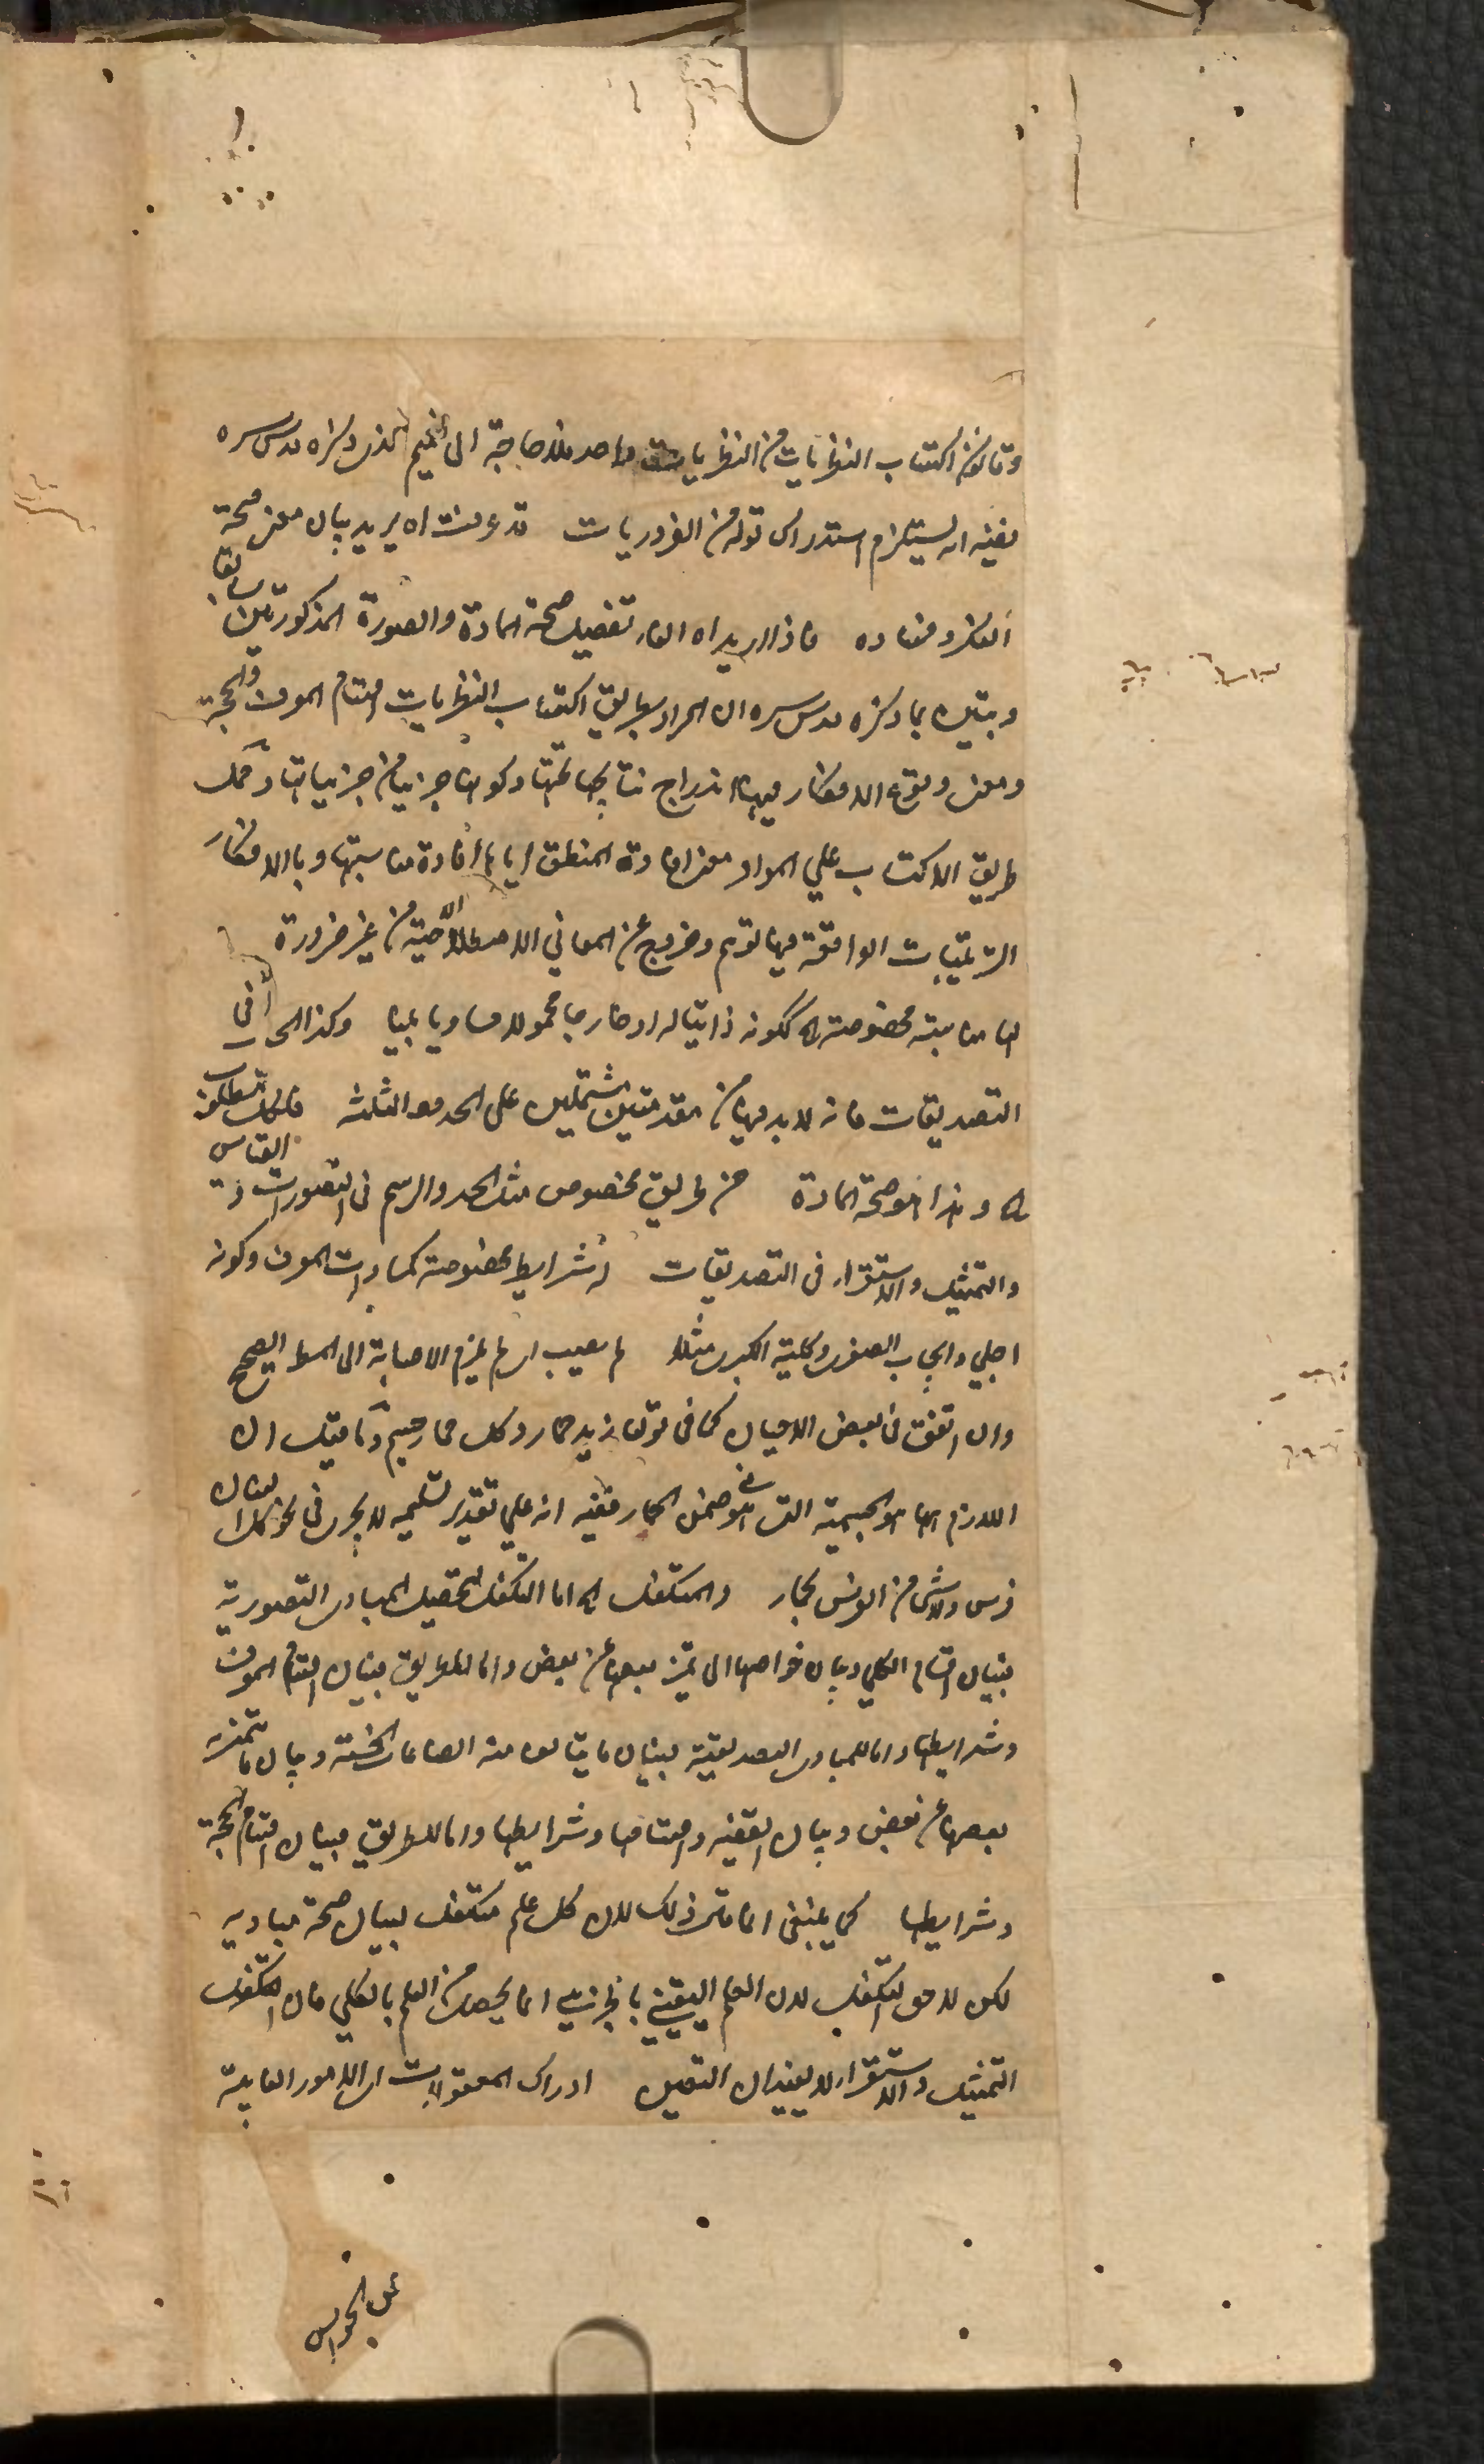 وقانون اكتساب النظريات من النظريات واحد فلا حاجة الى التعميم الذي ذكره قدس سره
ففيه انه يستلزم استدراك قوله من الضروريات قد عرفت اه يريد بيان معنى صحة
الفكر وفساده فاذا اريد اه اشارة تفصيل صحة المادة والصورة المذكورتين سابقا
وتبين بما ذكره قدس سره ان المراد بطريق اكتساب النظريات اقسام المعرف والحجة
ومعنى وقوع الافكار فيها اندراج نتايجها تحتها وكونها جزئيا من جزئياتها وحمل
طريق الاكتساب على المواد معنى افادة المنطق اياها افادة مناسبتها وبالافكار
الترتيبات الواقعة فيها توهم وخروج عن المعاني الاصطلاحية من غير ضرورة
لها مناسبة مخصوصة اه ككونه ذاتيا له او خارجا محمولا مساويا بينا وكذا الحال في
التصديقات فانه لابد فيها من مقدمتين مشتملين على الحدود الثلثة
اه وهذا هو صحة المادة من طريق مخصوص مثل الحد والرسم في التصورات والقياس
والتمثيل والاستقراء في التصديقات له شرايط مخصوصة كمساوات المعرف وكونه
اجلي وايجاب الصغرى وكلية الكبرى مثلا لم يصب اي لم يلزم الاصابة الى المط الصحيح
وان اتفق في بعض الاحيان كما في قولنا زيد حمار وكل حمار جسم وما قيل ان
اللازم ههنا هو الجسمية التي هي في ضمن الحمار ففيه انه علي تقدير تسليمه لا يجري في نحو كل انسان
فرس ولا شيء من الفرس بحمار والمتكفل اه اما التكفل لتحصيل المبادي التصورية
فببيان اقسام الكلي وبيان خواصها الى تميز بعضها عن بعض واما للطريق فببيان اقسام المعرف
وشرايطها واما للمبادي التصديقية فببيان ما يتالف منه الصناعات الخمسة وبيان ما يتميز به
بعضها عن بعض وبيان القضية واقسامها وشرايطها واما للطريق فببيان اقسام الحجة
وشرايطها كما ينبغي انما قال ذلك لان كل علم متكفل لبيان صحة مباديه
لكن لا حق التكفل لان العلم اليقيني بالجزئي انما يحصل من العلم بالكلي فان التكفل
التمثيل والاستقراء لا يفيدان اليقين ادراك المعقولات اي الامور الغايبة
عن الحواس